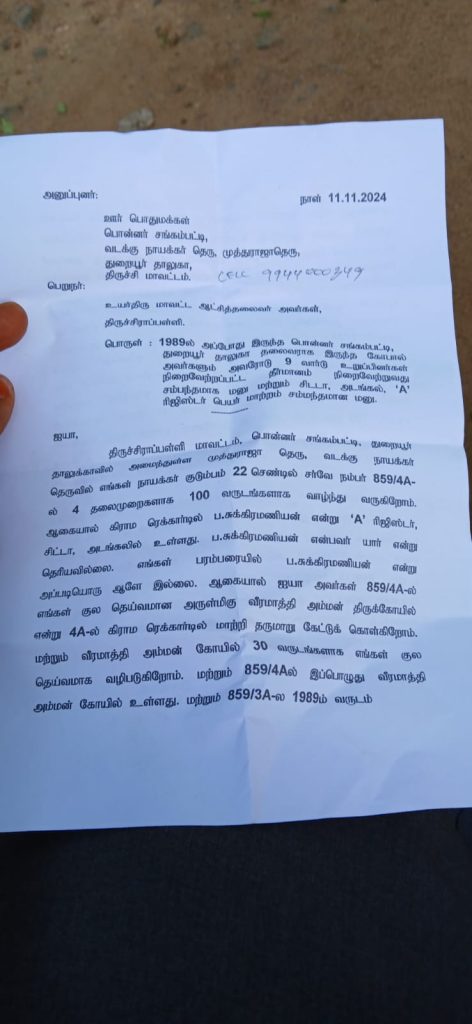 அனுப்புனர்: நாள் 11.11.2024
ஊர் பொதுமக்கள்
பொன்னர் சங்கம்பட்டி,
வடக்கு நாயக்கர் தெரு, முத்துராஜாதெரு,
துறையூர் தாலுகா,
திருச்சி மாவட்டம். CELL 9944000349
பெறுநர்:
உயர்திரு மாவட்ட ஆட்சித்தலைவர் அவர்கள்,
திருச்சிராப்பள்ளி.
பொருள் : 1989ல் அப்போது இருந்த பொன்னர் சங்கம்பட்டி,
துறையூர் தாலுகா தலைவராக இருந்த கோபால்
அவர்களும் அவரோடு 9 வார்டு உறுப்பினர்கள்
நிறைவேற்றப்பட்ட தீர்மானம் நிறைவேற்றுவது
சம்பந்தமாக மனு மற்றும் சிட்டா, அடங்கல், 'A'
ரிஜிஸ்டர் பெயர் மாற்றம் சம்மந்தமான மனு.
ஐயா,
திருச்சிராப்பள்ளி மாவட்டம், பொன்னர் சங்கம்பட்டி, துறையூர்
தாலுக்காவில் அமைந்துள்ள முத்துராஜா தெரு, வடக்கு நாயக்கர்
தெருவில் எங்கள் நாயக்கர் குடும்பம் 22 செண்டில் சர்வே நம்பர் 859/4A-
ல் 4 தலைமுறைகளாக 100 வருடங்களாக வாழ்ந்து வருகிறோம்.
ஆகையால் கிராம ரெக்கார்டில் ப.சுக்கிரமணியன் என்று 'A' ரிஜிஸ்டர்,
சிட்டா, அடங்கலில் உள்ளது. ப.சுக்கிரமணியன் என்பவர் யார் என்று
தெரியவில்லை. எங்கள் பரம்பரையில் ப.சுக்கிரமணியன் என்று
அப்படியொரு ஆளே இல்லை. ஆகையால் ஐயா அவர்கள் 859/4A-ல்
எங்கள் குல தெய்வமான அருள்மிகு வீரமாத்தி அம்மன் திருக்கோயில்
என்று 4A-ல் கிராம ரெக்கார்டில் மாற்றி தருமாறு கேட்டுக் கொள்கிறோம்.
மற்றும் வீரமாத்தி அம்மன் கோயில் 30 வருடங்களாக எங்கள் குல
தெய்வமாக வழிபடுகிறோம். மற்றும் 859/4Aல் இப்பொழுது வீரமாத்தி
அம்மன் கோயில் உள்ளது. மற்றும் 859/3A-ல 1989ம் வருடம்